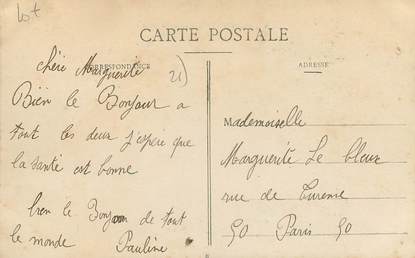 Lot
CARTE POSTALE
CORRESPONDANCE
ADRESSE
21)
chéri Marguerite
Bien le Bonjour a
tout les deux j'espère que
la santé est bonne
bien le Bonjour de tout
le monde Pauline
Mademoiselle
Marguerite Le
rue de Turenne
90 Paris 90